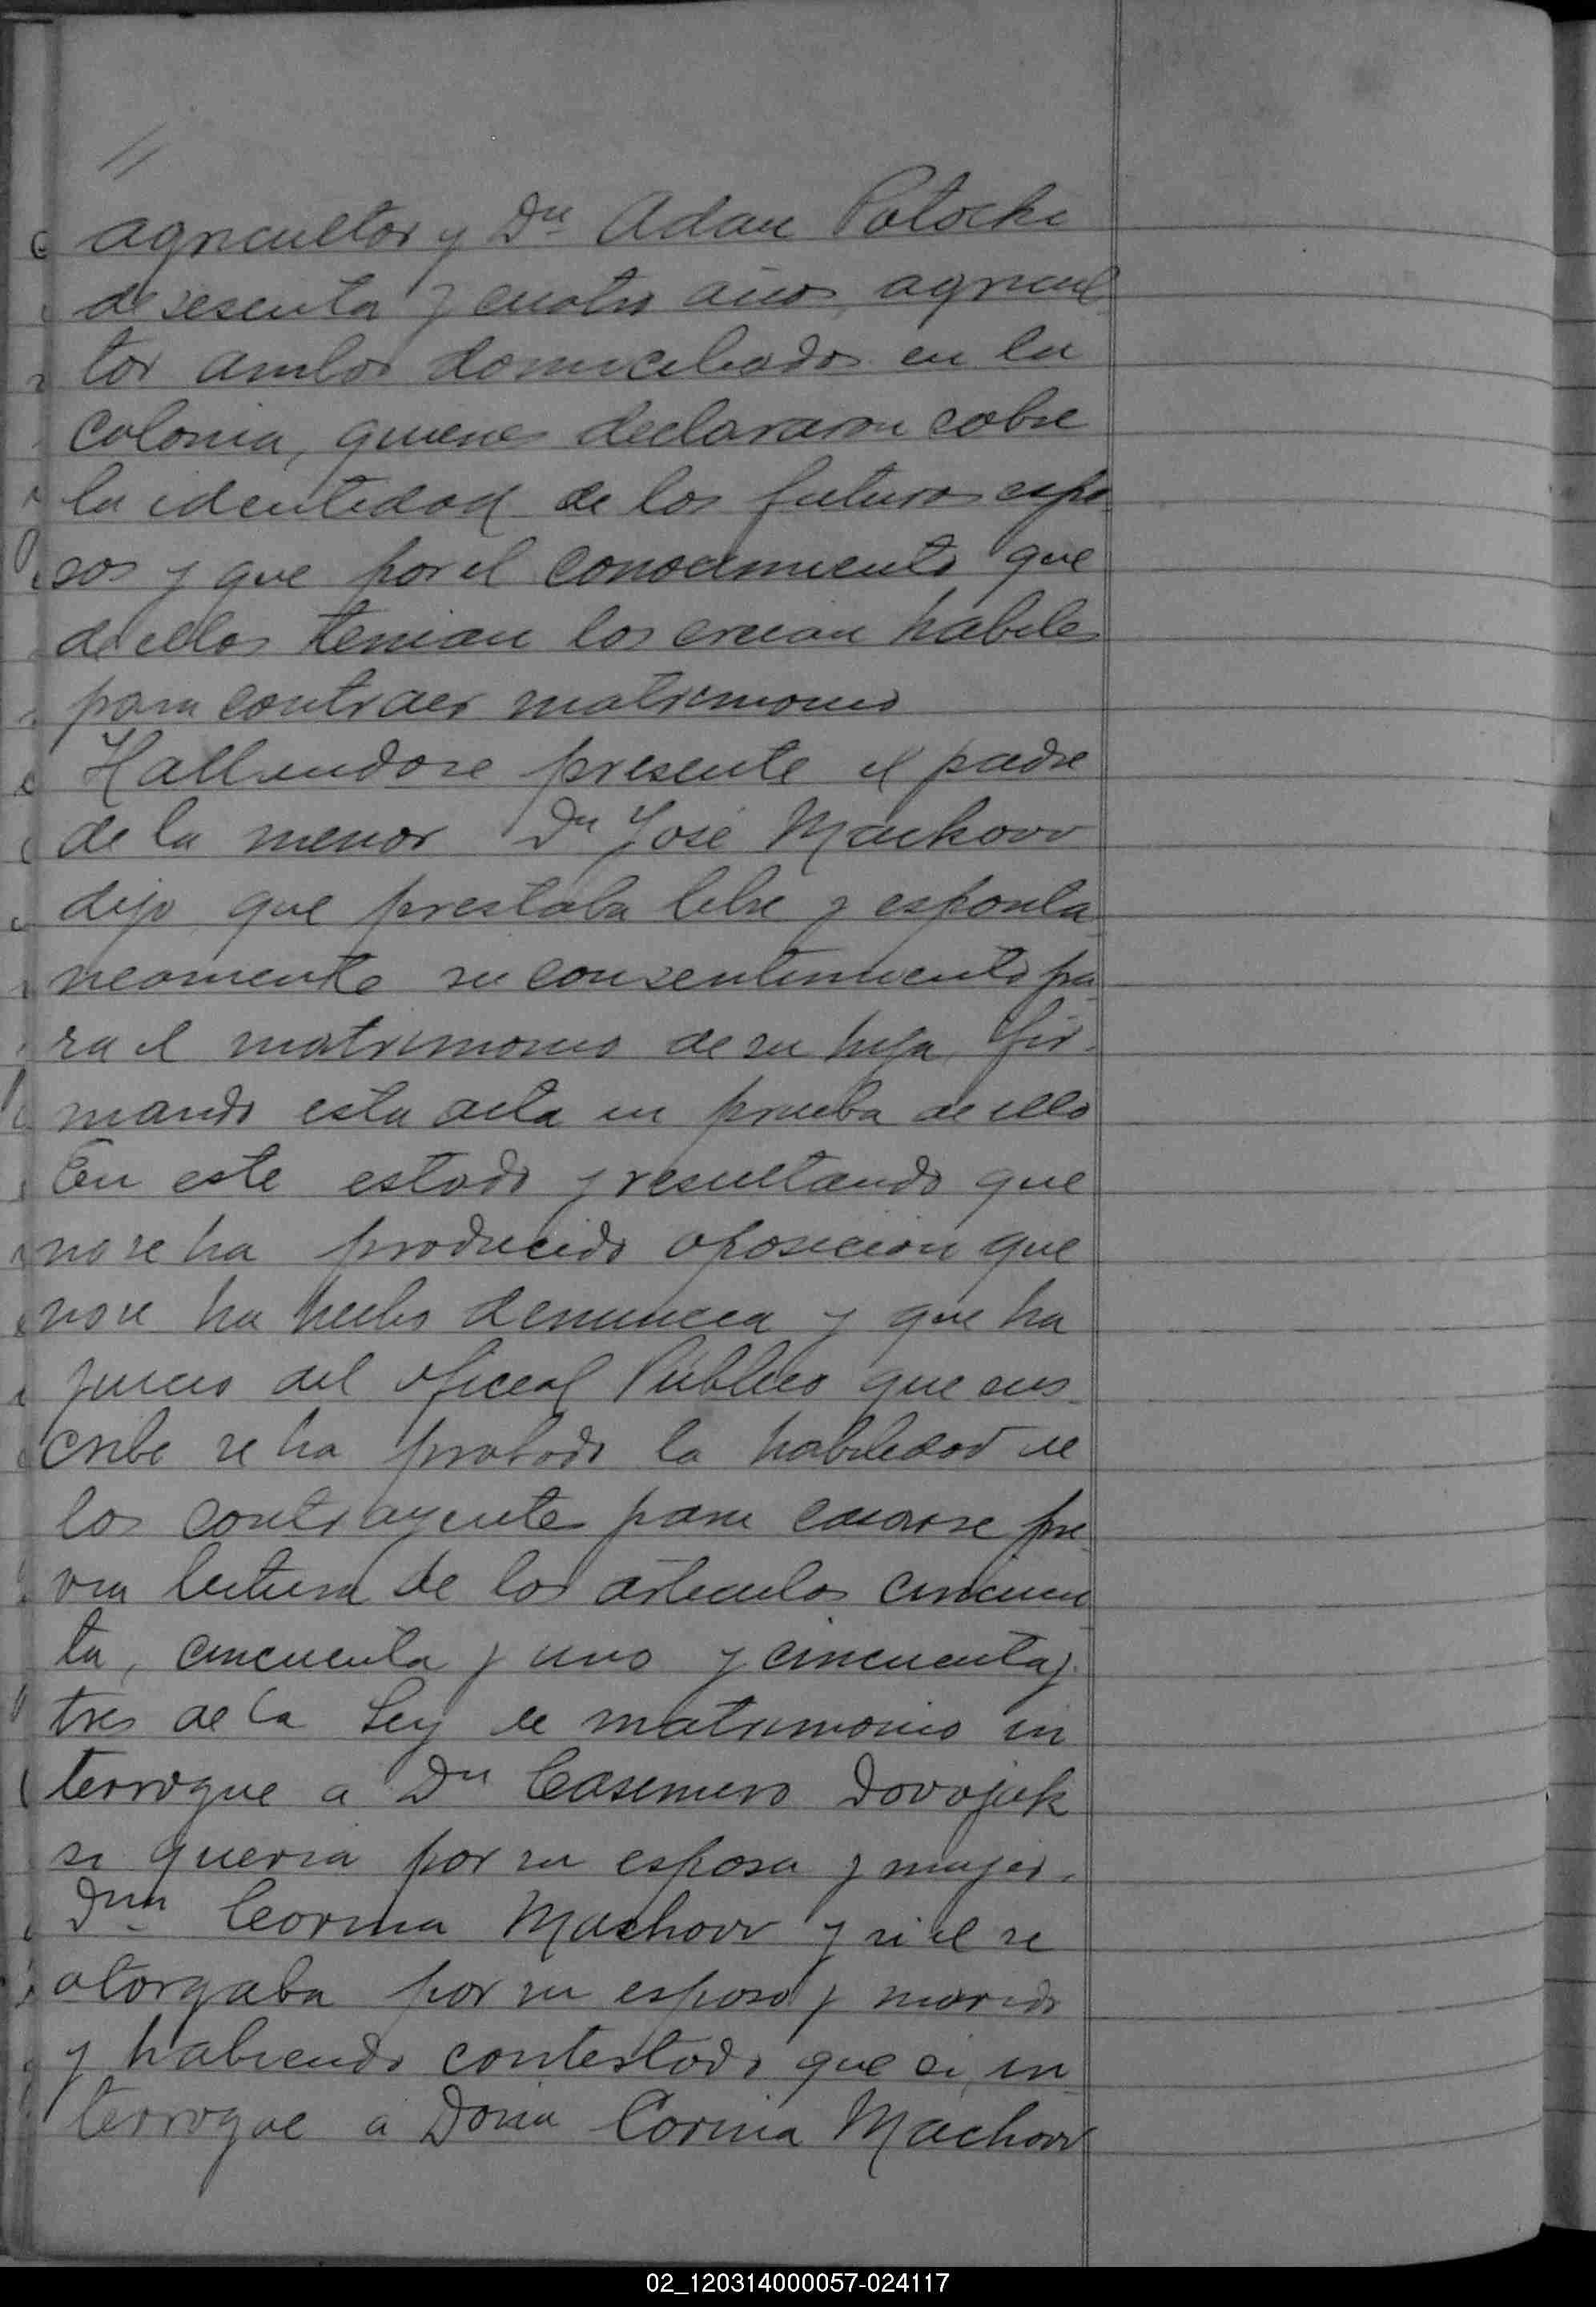 agricultor y Dn Adan Potocki
de sesenta y cuatro años, agricul
tor ambos domiciliados en la
Colonia, quienes declararon sobre
la identidad de los futuros espo
sos y que por el conocimiento que
de ellos tenian los creian habiles
para contraer matrimonio
Hallandose presente el padre
de la menor Dn José Machovv
dijo que prestaba libre y esponta
neamente su consentimiento pa
ra el matrimonio de su hija, fir-
mando esta acta en prueba de ello
En este estado y resultando que
no se ha producido oposicion que
no se ha hecho denuncia y que ha
juicio del oficial Publico que sus
cribe se ha probado la habilidad de
los contrayentes para casarse pre
via lectura de los articulos cincuen
ta, cincuenta y uno y cincuenta y
tres de la Ley de matrimonio in
terrogue a Dn Casemiro Dovojak
si queria por su esposa y mujer,
Dna Corina Machovv y si el se
otorgaba por su esposo y marido
y habiendo contestado que si, in
terrogue a Dona Corina Machovv
02_120314000057-024117